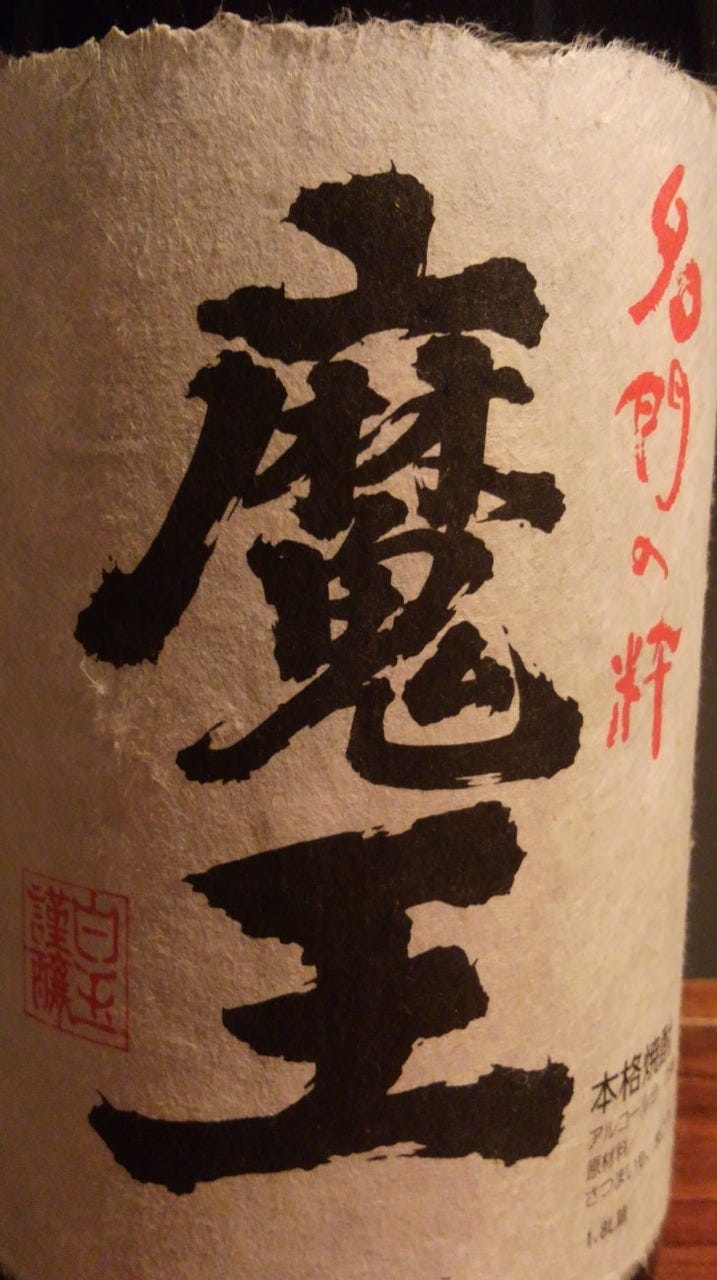 名門の粋
魔王
白玉
謹醸
本格焼酎
アルコール
原材料
さつまいも、
1.8L詰